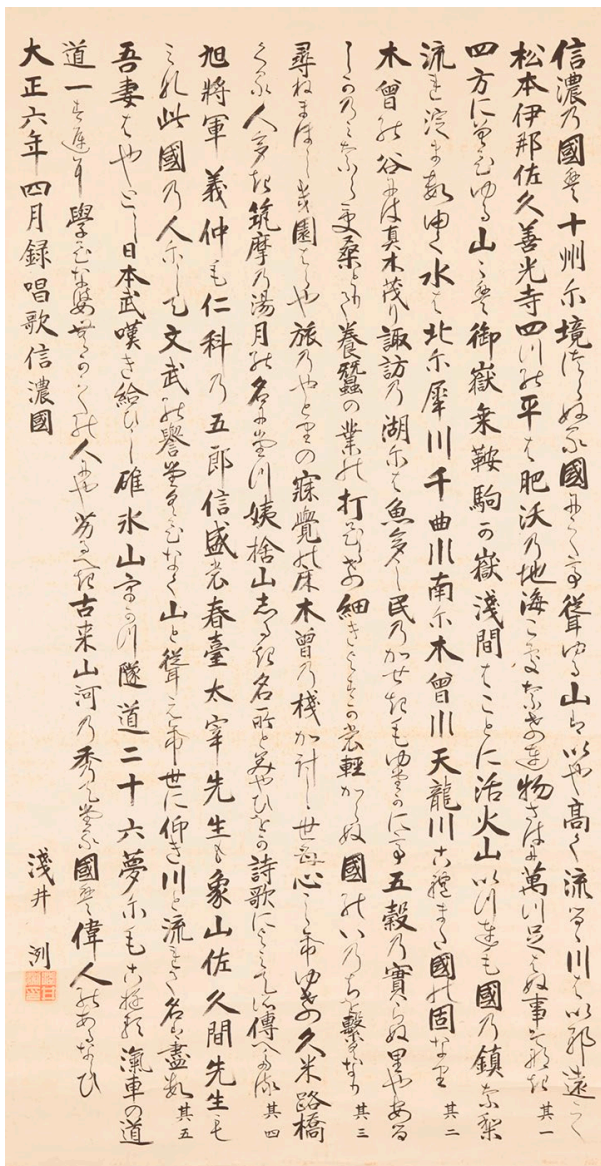 信濃の國は十州に境つらぬる國にして聳ゆる山はいや高く流るる川はいや遠し
松本伊那佐久善光寺四つの平は肥沃の地海こそなけれ物さはに萬つ足らはぬ事そなき 其一
四方に聳ゆる山々は御嶽乗鞍駒か嶽淺間はことに活火山いつれも國の鎮なり
流れ淀ますゆく水は北に犀川千曲川南に木曾川天龍川これまた國の固なり 其二
木曾の谷には真木茂り諏訪の湖には魚多し民のかせきもゆたかにて五穀の實らぬ里やある
しかのみならす桑とりて養蠶の業の打ひらけ細きよすかも輕からぬ國のいのちを繋くなり 其三
尋ねまほしき園はらや旅のやとりの寐覺の床木曾の棧かけし世も心してゆけ久米路橋
くる人多き筑摩の湯月の名にたつ姨捨山しるき名所とみやひをか詩歌によみてそ傳へたる 其四
旭將軍義仲も仁科の五郎信盛も春臺太宰先生も象山佐久間先生も
みな此國の人にして文武の譽たくひなく山と聳えて世に仰き川と流れて名は盡す 其五
吾妻はやとし日本武嘆き給ひし碓氷山穿つ隧道二十六夢にもこゆる滊車の道
道一すちに學ひなは昔の人にや劣るへき古来山河の秀てたる國は偉人のあるならひ
大正六年四月録唱歌信濃國
淺井 洌